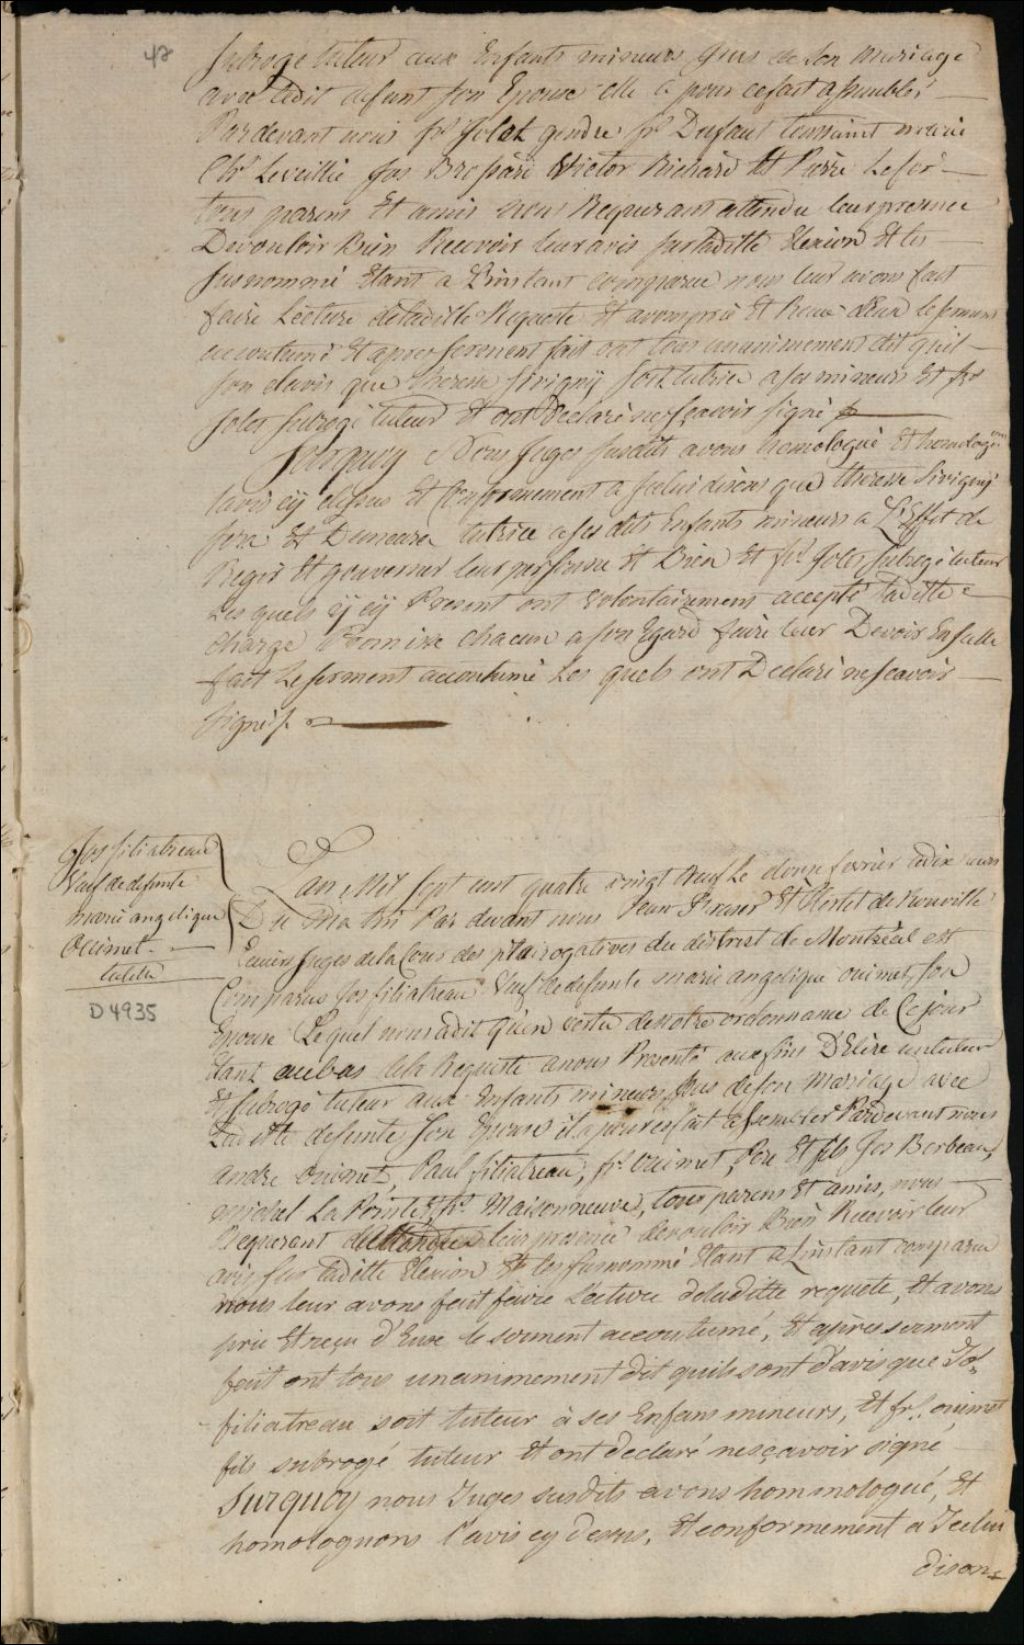 47
Subrogé tuteur aux Enfants mineurs issus de son Mariage
avec ledit defunt son Epoux elle a pour cefait assemblés
Pardevant nous fr. Jolet gendre fr. Dufaut toussaint
Chs Leveillié Jos Victor Richard Et Pierre
tous parens Et amis nous Requerans attendu leurpresence
Devouloir Bien Recevoir leuravis surladitte Elexion Et les
susnommé Etant a L'instant comparue nous leur avons fait
faire Lécture deladitte Requete Et avonspris Et Recu d'Eux le serment
accoutumé Et apres serment fait ont tous unanimement dit quil
son davis que therese sivigny soit tutrice a ses mineurs Et fr.
Jolet subrogé tuteur Et ont Declaré nesçavoir signé
Surquoy Nous Juges susdits avons homologué Et homologons
lavis cÿ dessus Et Conformement a Jcelui disons que therese Sivigny
sera Et Demeurera tutrice a ses dits Enfants mineurs a L'Effet de
Regir Et gouverner leur personne Et Bien Et fr. Jolet subrogé tuteur
Les quels ÿ cÿ Present ont volontairement accepté laditte
charge Promise chacun a son Egard faire leur Devoir En
fait Le serment accoutumé Les quels ont Declaré nescavoir
signés.
Jos filiatreau
Veuf de defunte
marie angelique
Ouimet
tutelle
D4935
Lan Mil Sept cent quatre vingt neuf Le douze fevrier adix heures
Du Matin Par devant nous Jean Fraser Et Hertel de Rouville
Ecuiers Juges dela Cour des plaits
du district de Montréal est
Comparue Jos filiatreau Veuf de defunte marie angelique ouimet, son
Epouse Lequel nous adit qu'en vertu denotre ordonnance de Ce jour
Etant aubas dela Requete a nous Presenté aux fins D'Elire un tuteur
Et subrogé tuteur aux Enfants mineurs issus de son Mariage avec
Laditte defunte son Epouse il a pour cefait assembler Pardevant nous
andre ouimet, Paul filiatreau, fr. Ouimet, Pere Et fils Jos Berbeau,
michel La Pointe, Et fr. Maisonneuve, tous parens Et amis, nous
Requerant leur presence devouloir Bien Recevoir leur
avis sur laditte Elexion Et les susnommé Etant a Linstant comparue
nous leur avons fait faire Lécture deladitte requete, Et avons
pris Et reçu d'Eux le serment accoutumé, Et après serment
fait ont tous unanimement dit quils sont d'avis que Jos.
filiatreau soit tuteur à ses Enfans mineurs, Et fr. ouimet
fils subrogé tuteur Et ont declaré nesçavoir signé
Surquoy nous Juges susdits avons hommologué, Et
homologuons l'avis cy dessus, Et conformement a Jcelui
disons